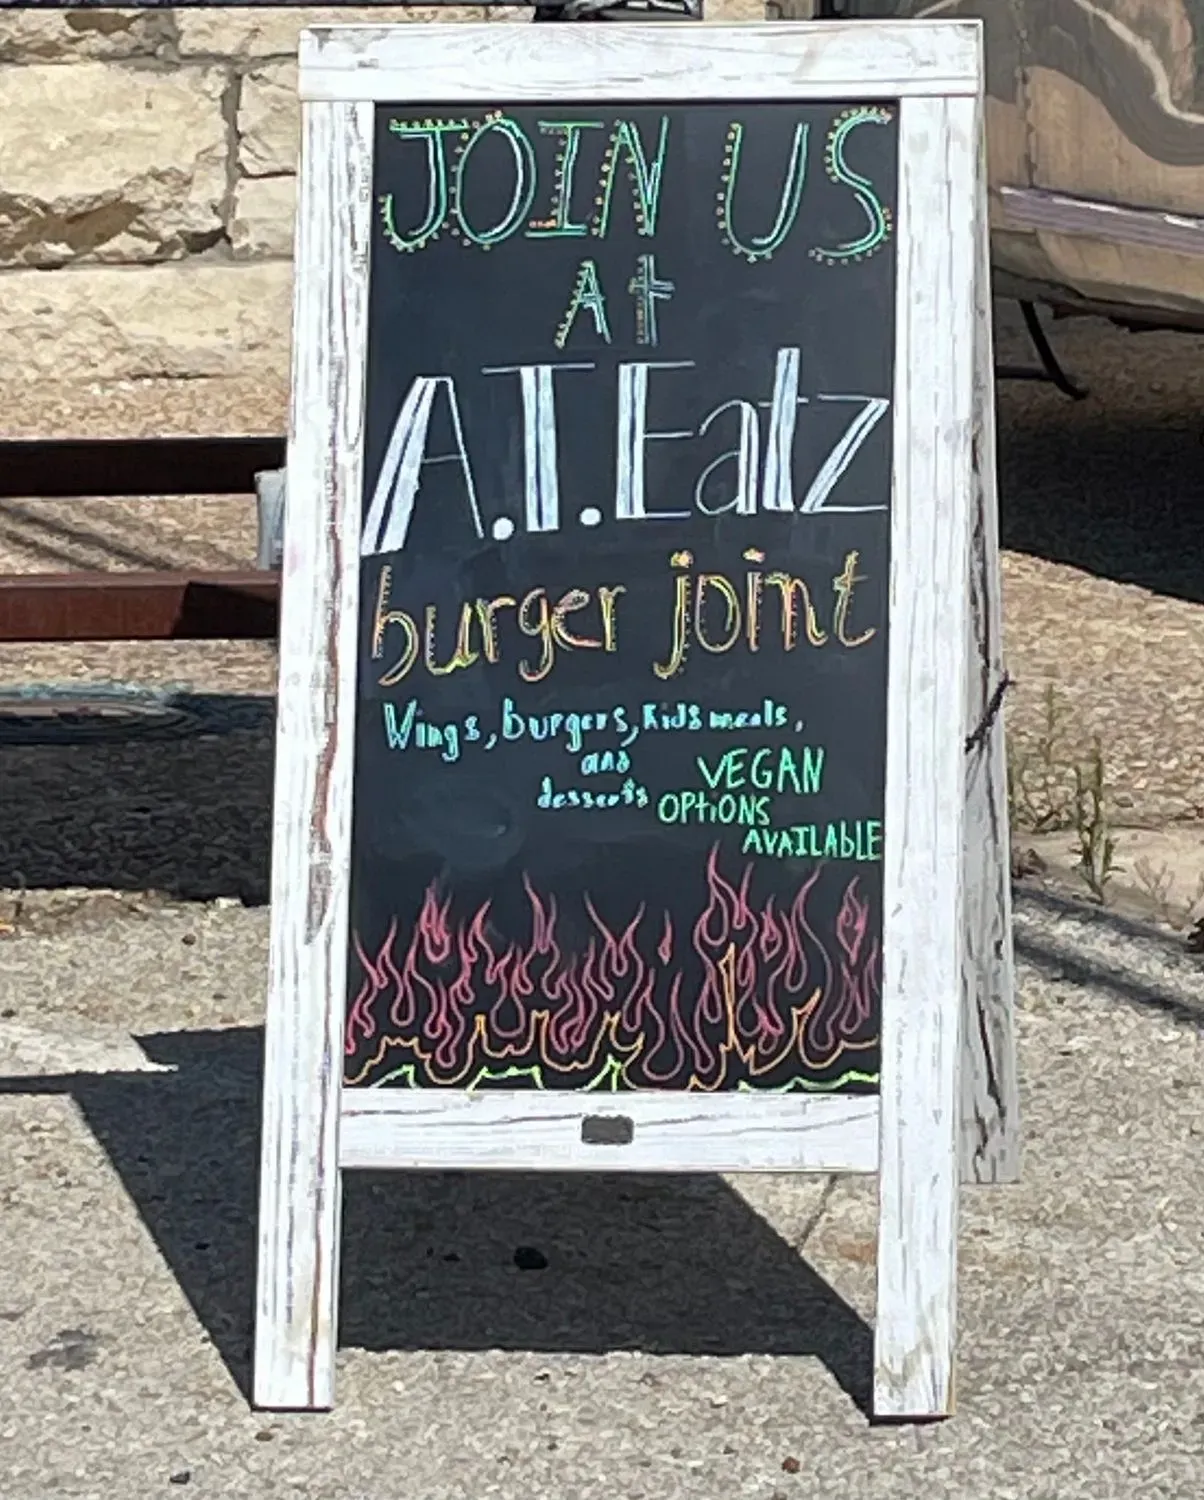 JOIN US
At
A.T.Eatz
burger joint
Wings, burgers, kids meals,
and
desserts
VEGAN
OPtiONS
AVAILAbLE